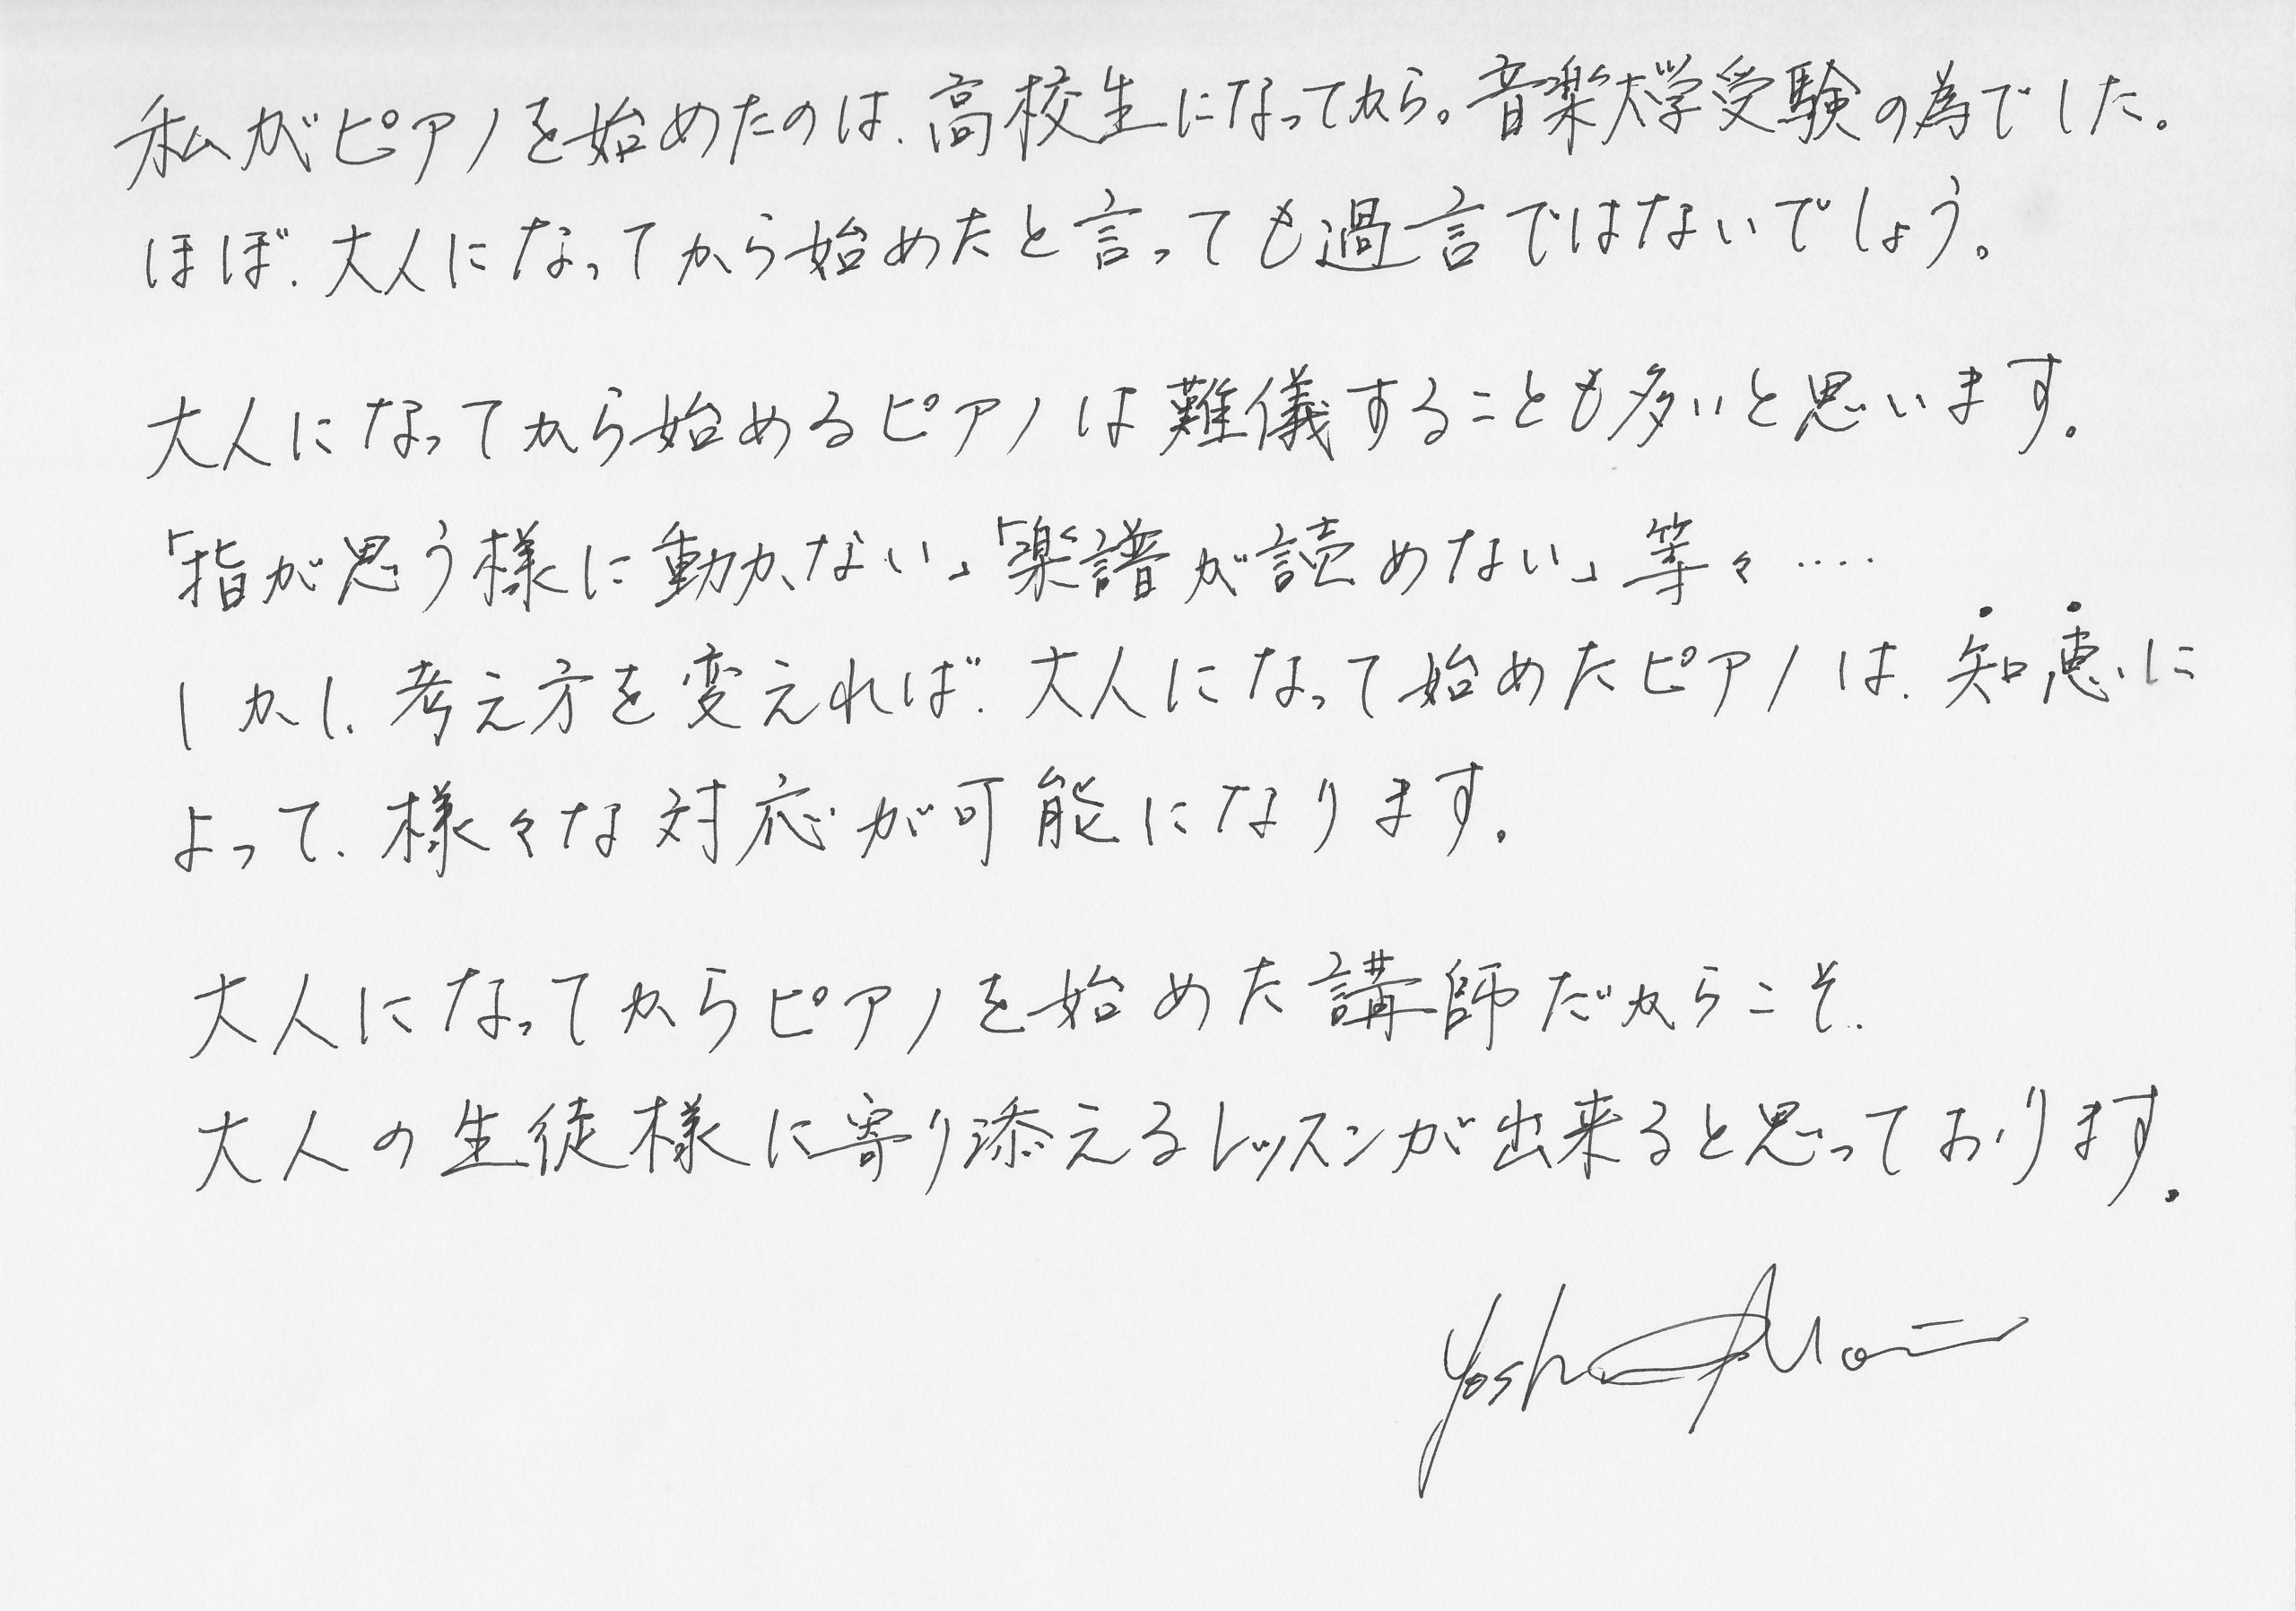 私がピアノを始めたのは、高校生になってから。音楽大学受験の為でした。
ほぼ、大人になってから始めたと言っても過言ではないでしょう。
大人になってから始めるピアノは難儀することも多いと思います。
「指が思う様に動かない」「楽譜が読めない」等々‥‥
しかし、考え方を変えれば、大人になって始めたピアノは、知恵に
よって、様々な対応が可能になります。
大人になってからピアノを始めた講師だからこそ、
大人の生徒様に寄り添えるレッスンが出来ると思っております。